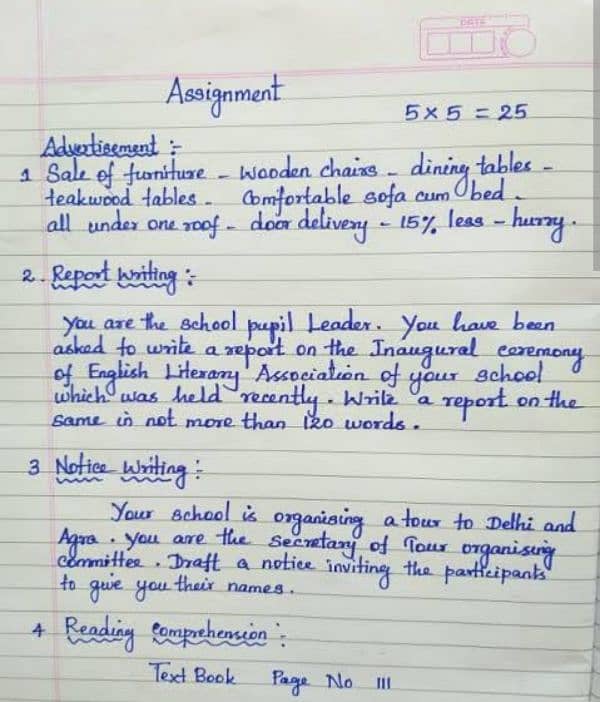 DATE
Assignment
5 x 5 = 25
Advertisement :-
1 Sale of furniture - Wooden chairs - dining tables -
teakwood tables - Comfortable sofa cum bed -
all under one roof - door delivery - 15% less - hurry.
2. Report Writing :-
You are the school pupil Leader. You have been
asked to write a report on the Inaugural ceremony
of English Literary Association of your school
which was held recently. Write a report on the
same in not more than 120 words.
3 Notice Writing :-
Your school is organising a tour to Delhi and
Agra. You are the secretary of Tour organising
committee. Draft a notice inviting the participants
to give you their names.
4 Reading Comprehension :-
Text Book Page No 111